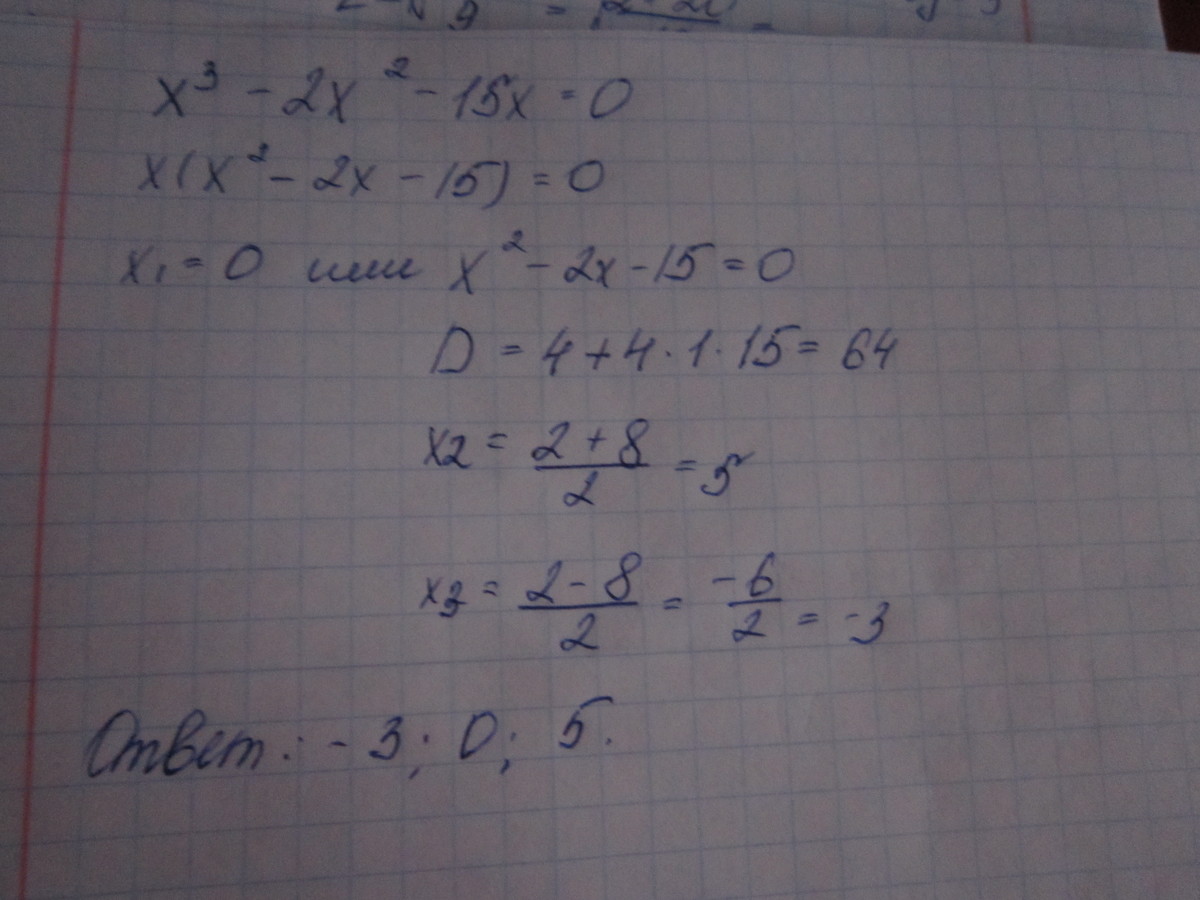 x³ - 2x² - 15x = 0
x(x² - 2x - 15) = 0
x₁ = 0 или x² - 2x - 15 = 0
D = 4 + 4 · 1 · 15 = 64
x₂ = (2 + 8)/2 = 5
x₃ = (2 - 8)/2 = -6/2 = -3
Ответ: -3; 0; 5.